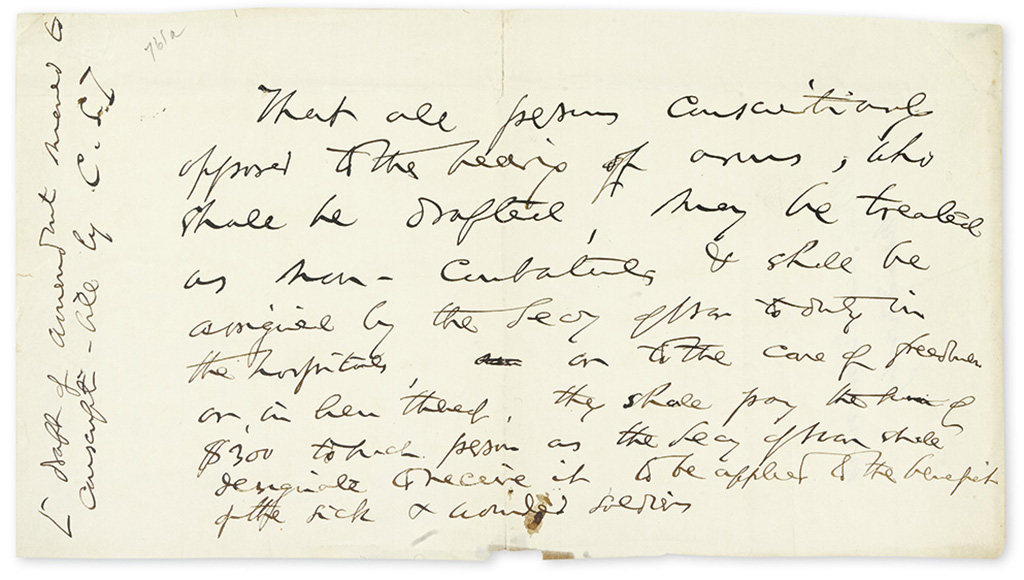 761a
That all persons conscientiously
opposed to the bearing of arms, who
shall be drafted, may be treated
as non-combatants & shall be
assigned by the Secy of War to duty in
the hospitals, or to the care of freedmen
or, in lieu thereof, they shall pay
$300 to such person as the Secy of War shall
designate to receive it to be applied to the benefit
of the sick & wounded soldiers
draft of amendment moved to
conscript-bill by C.S.]